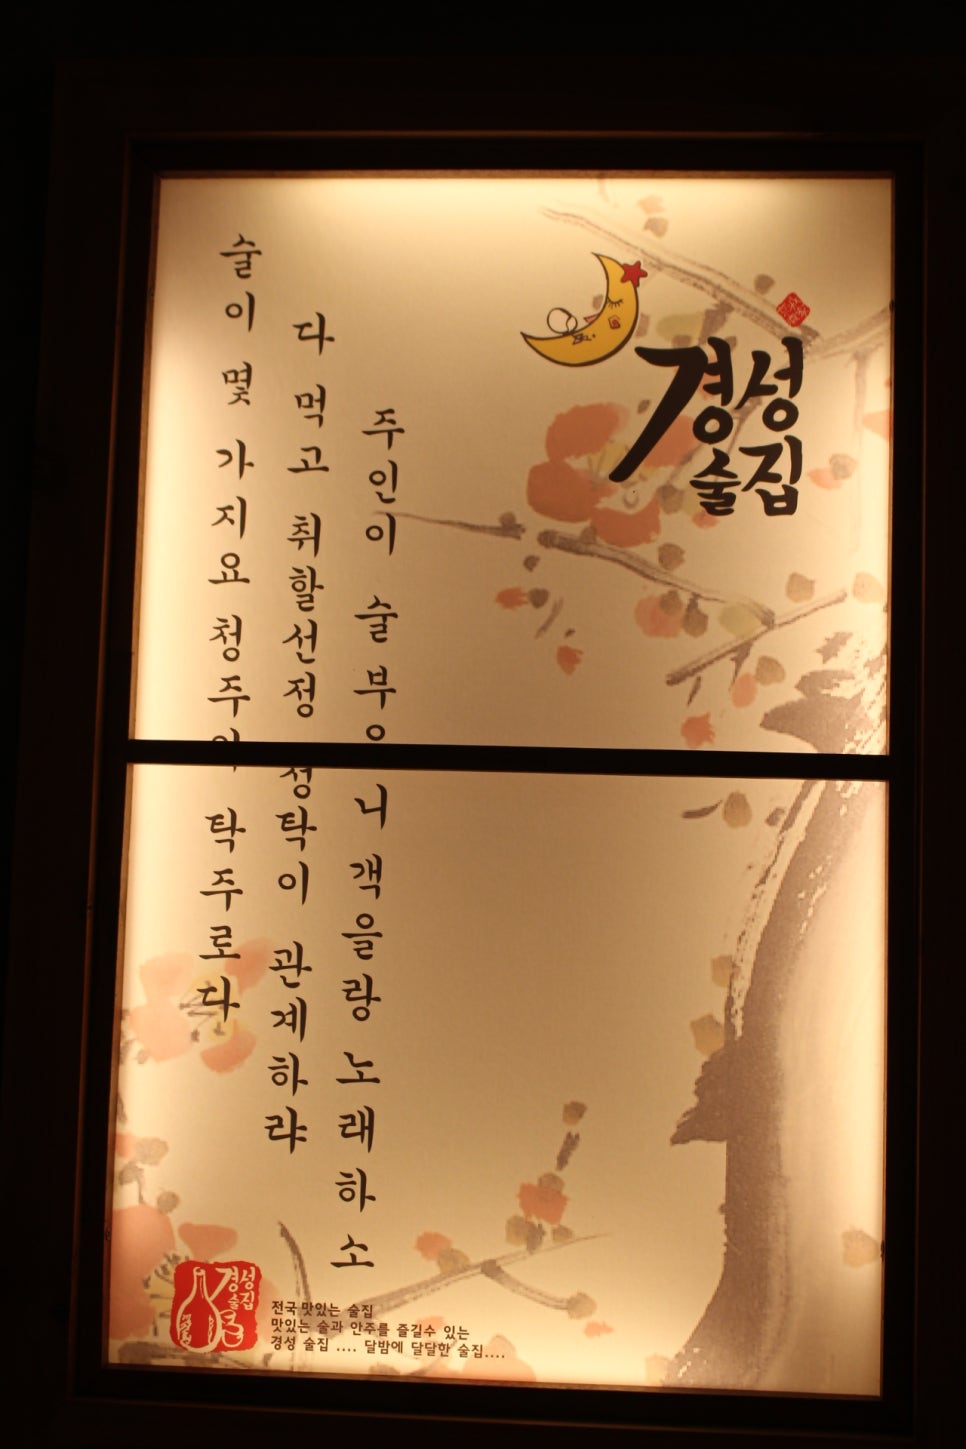 경성
술집
술이 몇 가지요 청주와 탁주로다
다 먹고 취할선정 청탁이 관계하랴
주인이 술 부으니 객을랑 노래하소
경성
술집
전국 맛있는 술집
맛있는 술과 안주를 즐길수 있는
경성 술집 .... 달밤에 달달한 술집....